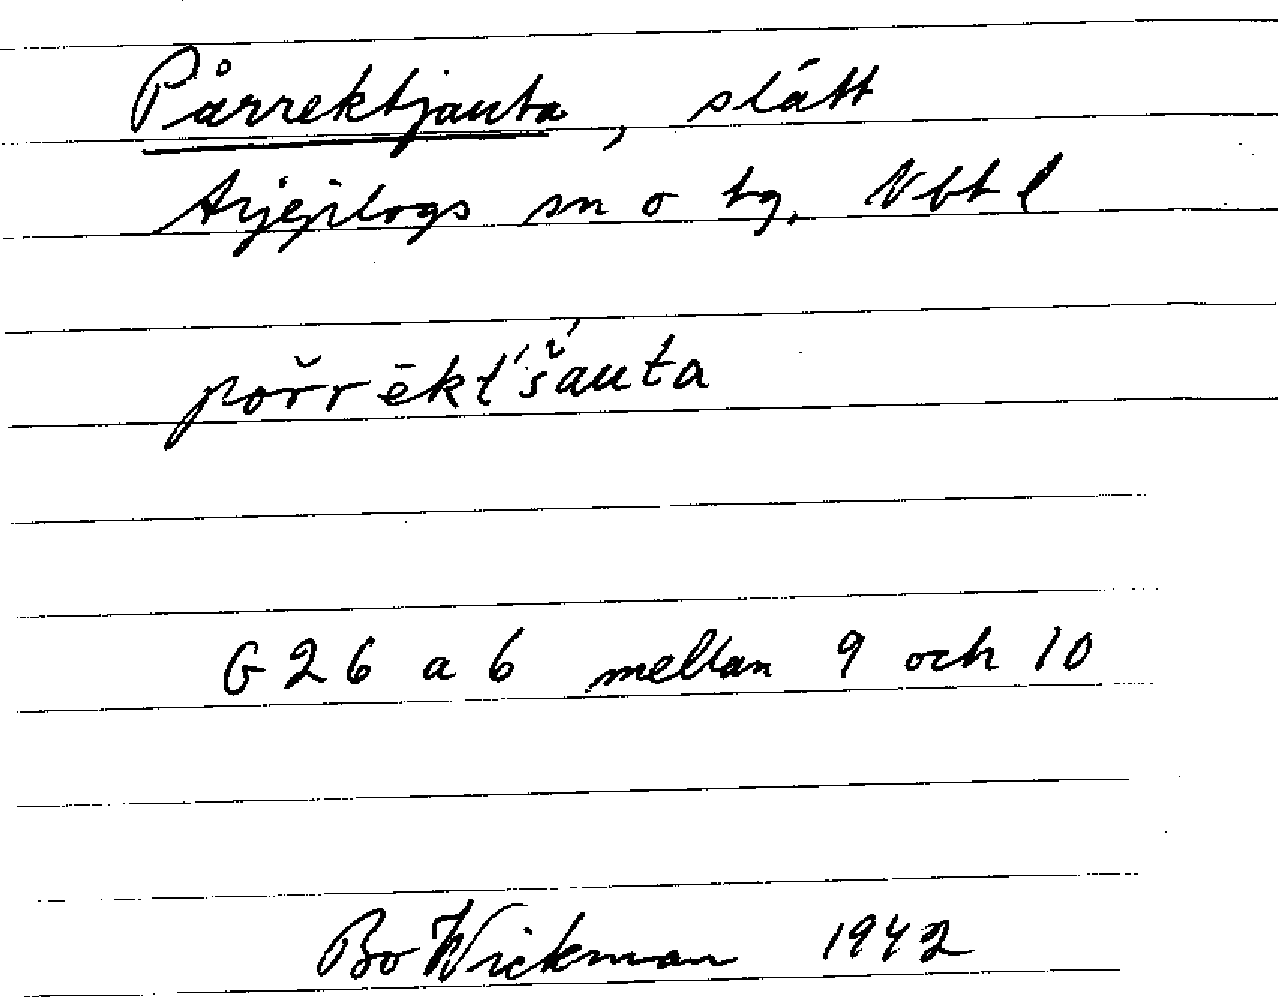 Pårrektjauta, slått
Arjeplogs sn o tg. Vbt l
pořrēkt́šáuta
G 26 a 6 mellan 9 och 10
Bo Wickman 1942